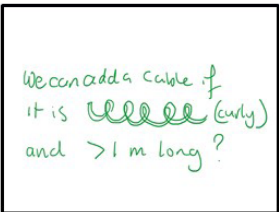 We can add a cable if
it is (curly)
and >1 m long?